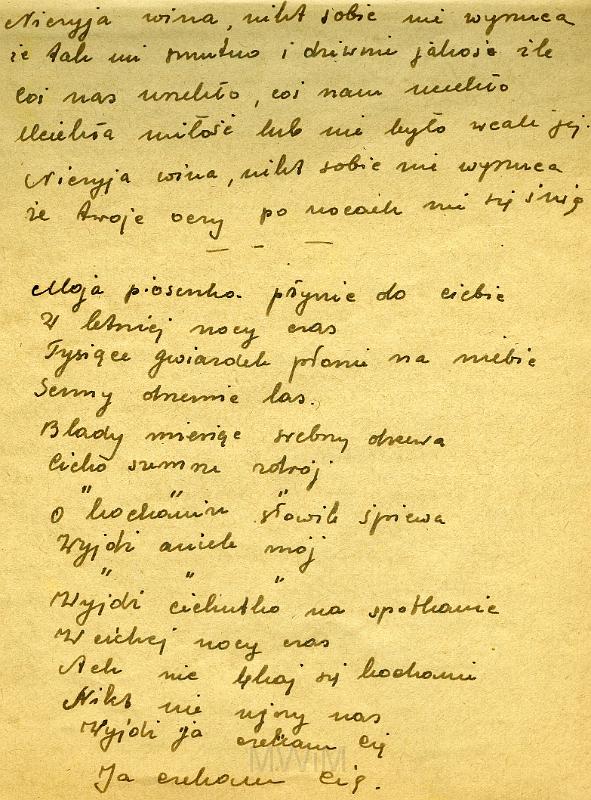 Niczyja wina, nikt sobie nie wyrzuca
że tak mi smutno i dziwnie jakoś źle
Coś nas urzekło, coś nam uciekło
Uciekła miłość lub nie było wcale jej.
Niczyja wina, nikt sobie nie wyrzuca
że twoje oczy po nocach mi się śnią
— — —
Moja piosenka płynie do ciebie
W letniej nocy czas
Tysiące gwiazdek płonie na niebie
Senny drzemie las.
Blady miesiąc srebrzy drzewa
Cicho szemrze zdrój
O "kochaniu" "słowik śpiewa
Wyjdź aniele mój
Wyjdź "cichutko" na spotkanie
W cichej nocy czas
Ach nie lękaj się kochanie
Nikt nie ujrzy nas
Wyjdź ja czekam Cię
Ja czekam Cię.
MWiM